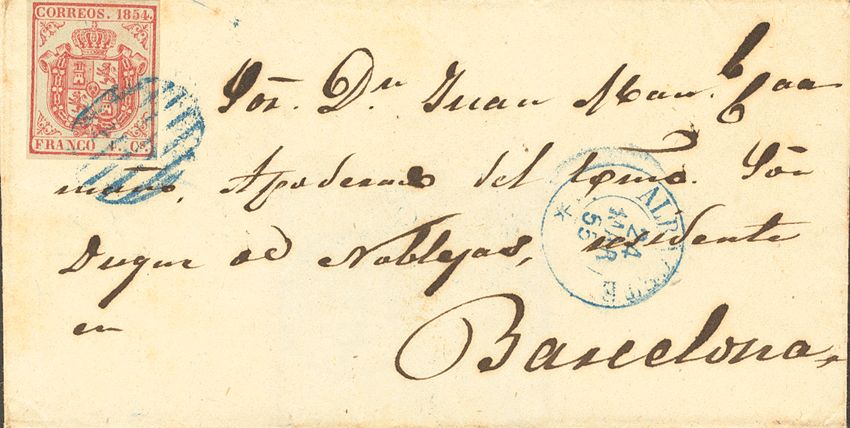 CORREOS. 1854.
FRANCO 4. Cs.
Sōr. Dn Juan Man. Caa
maño, Apoderado del Exmo. Sōr
Duque de Noblejas, residente
en
Barcelona,
ALBACETE
24
MAR
55